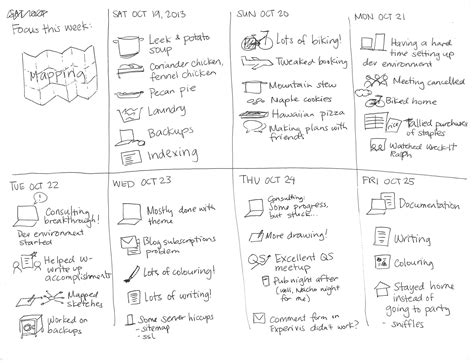 Focus this week:
Mapping
SAT OCT 19, 2013
Leek & potato
soup
Coriander chicken,
fennel chicken
Pecan pie
Laundry
Backups
Indexing
SUN OCT 20
Lots of biking!
Tweaked baking
Mountain stew
Maple cookies
Hawaiian pizza
Making plans with
friends
MON OCT 21
Having a hard
time setting up
dev environment
Meeting cancelled
Biked home
Tallied purchases
of staples
Watched Wreck-It
Ralph
TUE OCT 22
Consulting
breakthrough!
Dev environment
started
Helped W-
write up
accomplishments
Mapped
sketches
Worked on
backups
WED OCT 23
Mostly done with
theme
Blog subscriptions
problem
Lots of colouring!
Lots of writing!
Some server hiccups
- sitemap
- ssl
THU OCT 24
Consulting:
Some progress,
but stuck...
More drawing!
QS
Excellent QS
meetup
Pub night after
(well, Nacho night
for me)
Comment form on
Experivis didn't work?
FRI OCT 25
Documentation
Writing
Colouring
Stayed home
instead of
going to party
- sniffles